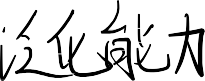 泛化能力